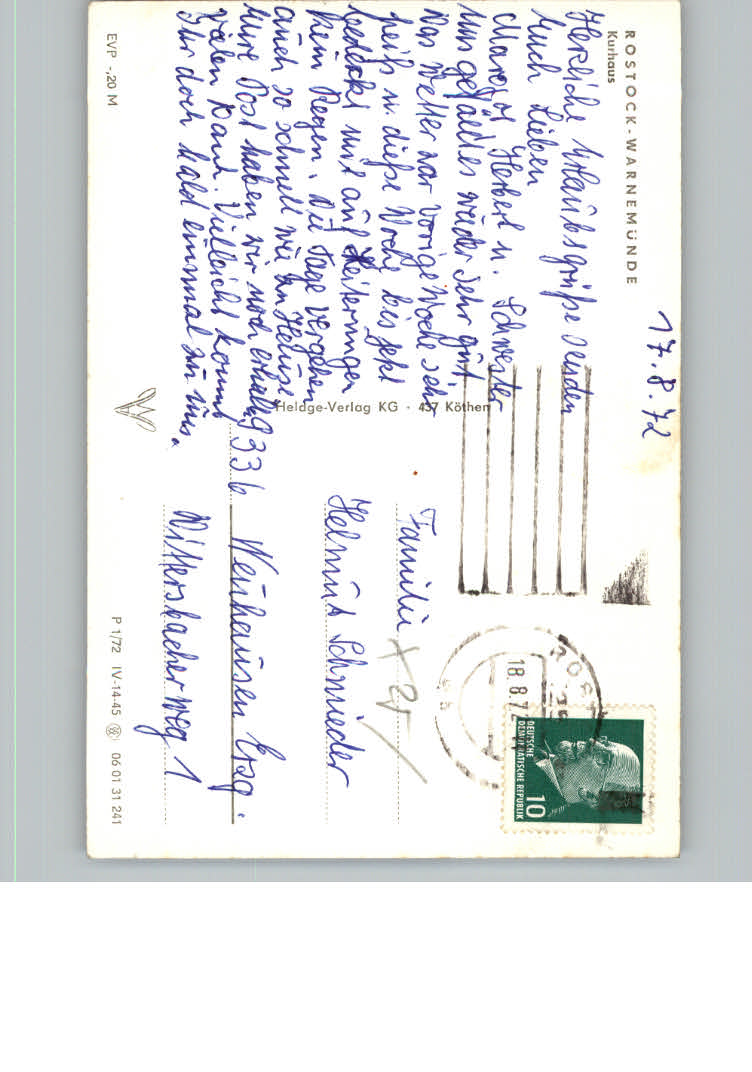 ROSTOCK-WARNEMÜNDE
Kurhaus
17.8.72
Herzliche Urlaubsgrüße senden
Euch Lieben
Margot Herbert u. Schwester
Uns gefällt es wieder sehr gut
Das Wetter war vorige Woche sehr
heiß u. diese Woche bis jetzt
bedeckt mit auf Heiterungen
kein Regen. Die Tage vergehen
auch so schnell wie zu Hause
Eure Post haben wir noch erhalten
vielen Dank. Vielleicht kommt
Ihr doch bald einmal zu uns.
Heldge-Verlag KG · 437 Köthen
EVP -,20 M
18.8.72
DEUTSCHE
DEMOKRATISCHE REPUBLIK
10
Familie
Helmut Schmieder
9336 Erzg.
Dittersbacher Weg 1
P 1/72 IV-14-45 06 01 31 241